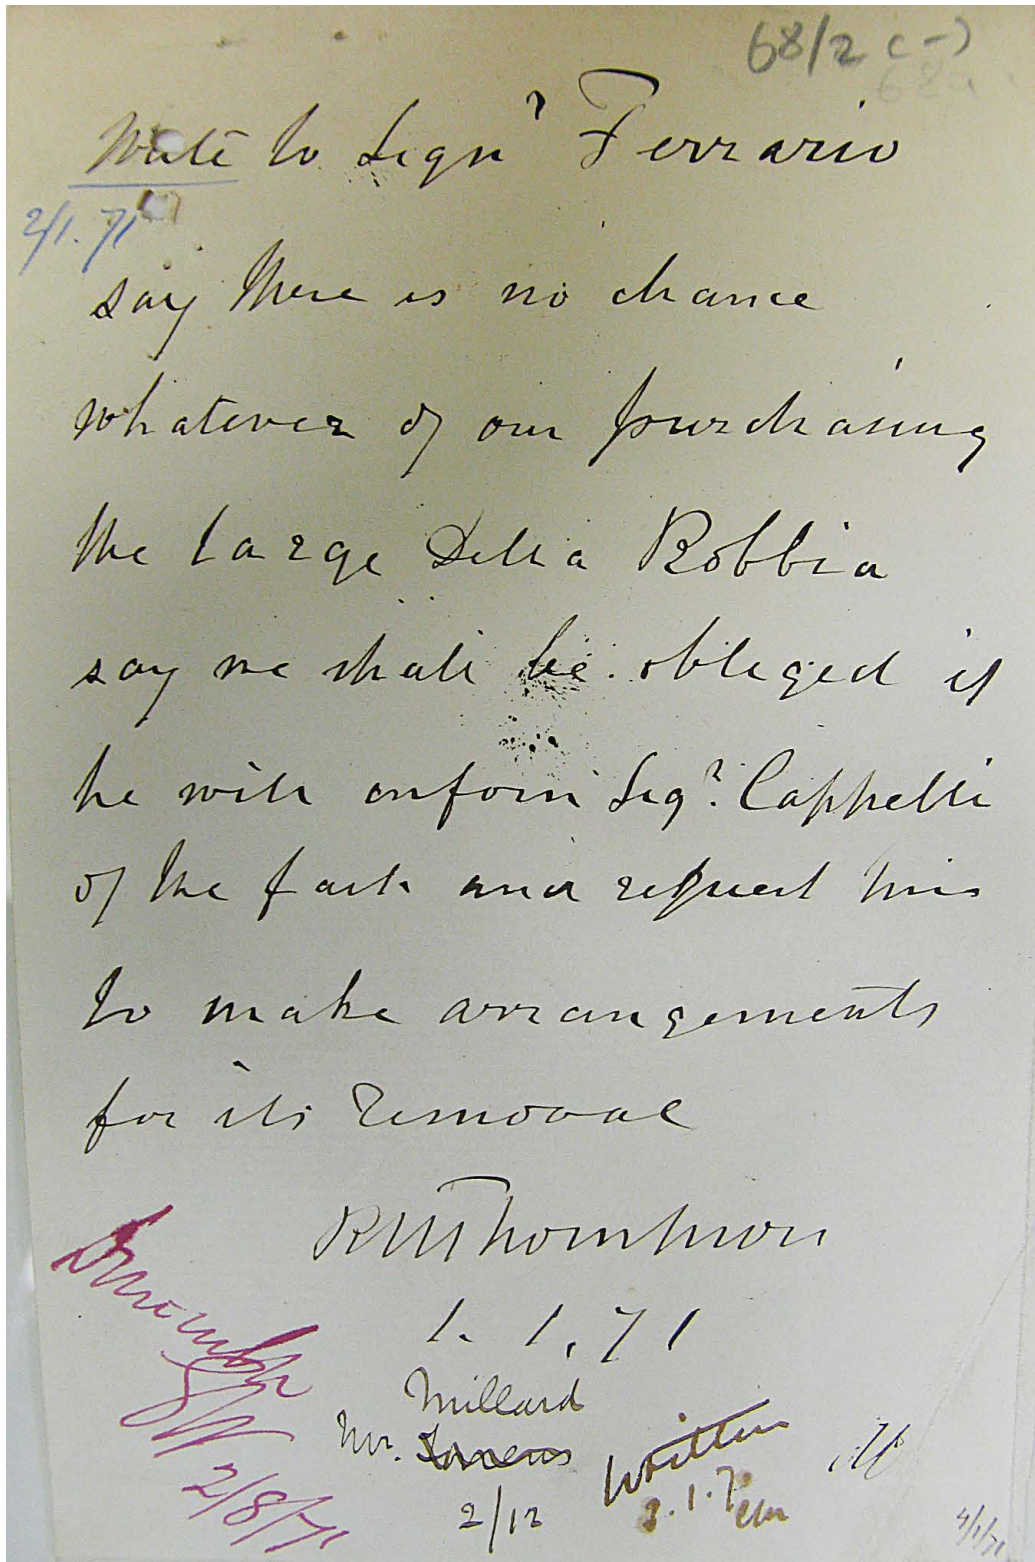 68/2 (-)
Write to Sigr Ferrario
2/1.71
say there is no chance
whatever of our purchasing
the large Della Robbia
say we shall be obliged if
he will inform Sigr. Cappelli
of the fact and request him
to make arrangements
for its removal
RAThompson
1.1.71
Millard
Mr.
2/12
Written
2/8/71
4/1/71